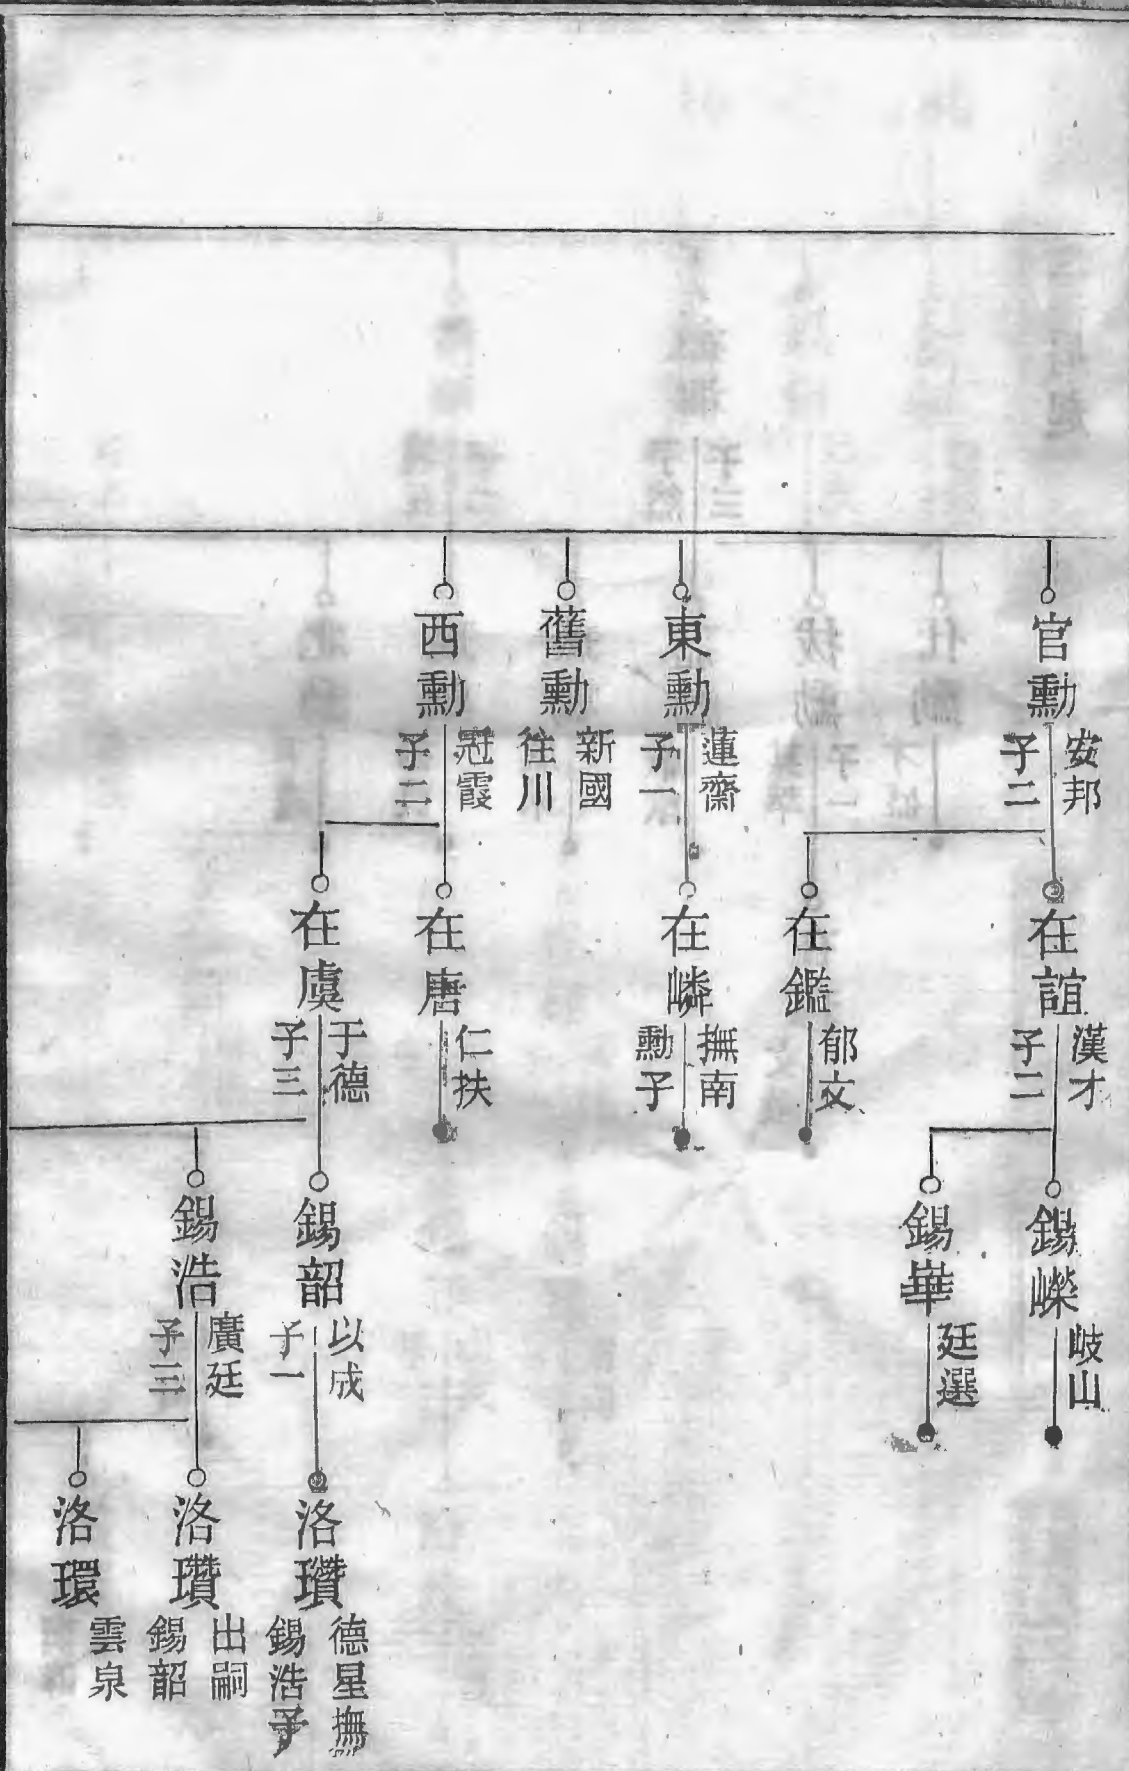 官勳
安邦
子二
東勳
蓮齋
子一
舊勳
新國
往川
西勳
冠霞
子二
在誼
漢才
子二
在鑑
郁文
在嶙
撫南
勳子
在唐
仁扶
在虞
于德
子三
錫嶸
岐山
錫崋
廷選
錫韶
以成
子一
錫浩
廣廷
子三
洛瓚
德星撫
錫浩子
洛瓚
出嗣
錫韶
洛環
雲泉